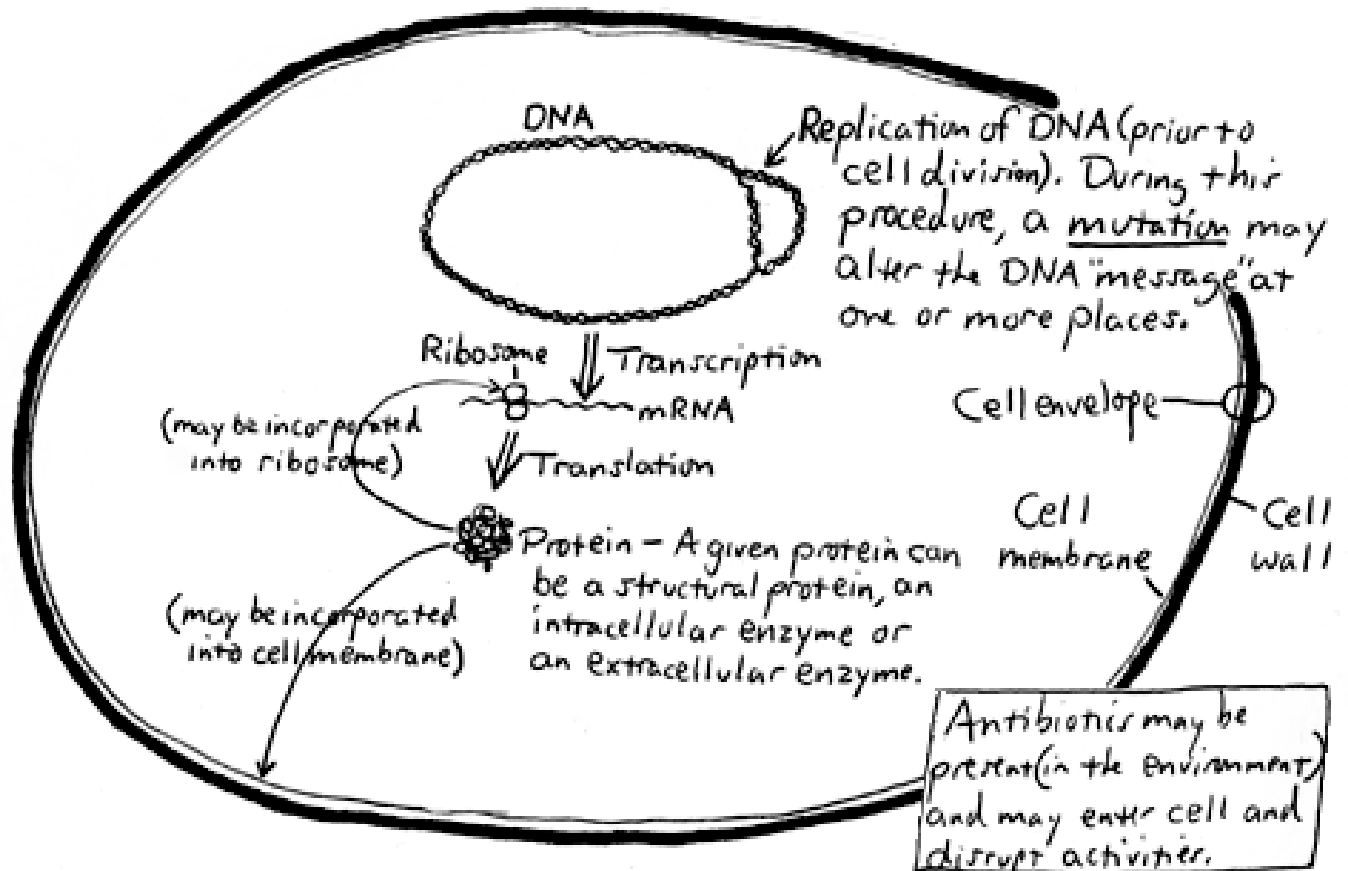 DNA
Replication of DNA (prior to
cell division). During this
procedure, a mutation may
alter the DNA "message" at
one or more places.
Ribosome
Transcription
mRNA
(may be incorporated
into ribosome)
Translation
Cell envelope
Cell
membrane
Cell
wall
Protein - A given protein can
be a structural protein, an
intracellular enzyme or
an extracellular enzyme.
(may be incorporated
into cell membrane)
Antibiotics may be
present (in the environment)
and may enter cell and
disrupt activities.